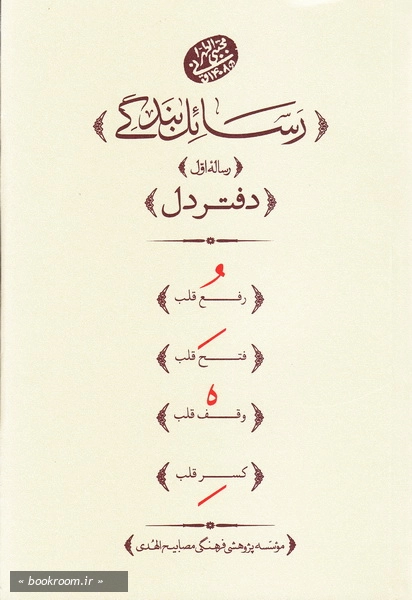 مجتبی الطهرانی
۱۴۰۸ق
رسائل بندگی
رساله اول
دفتر دل
رفع قلب
فتح قلب
وقف قلب
کسر قلب
مؤسسه پژوهشی فرهنگی مصابیح الهدی
« bookroom.ir »